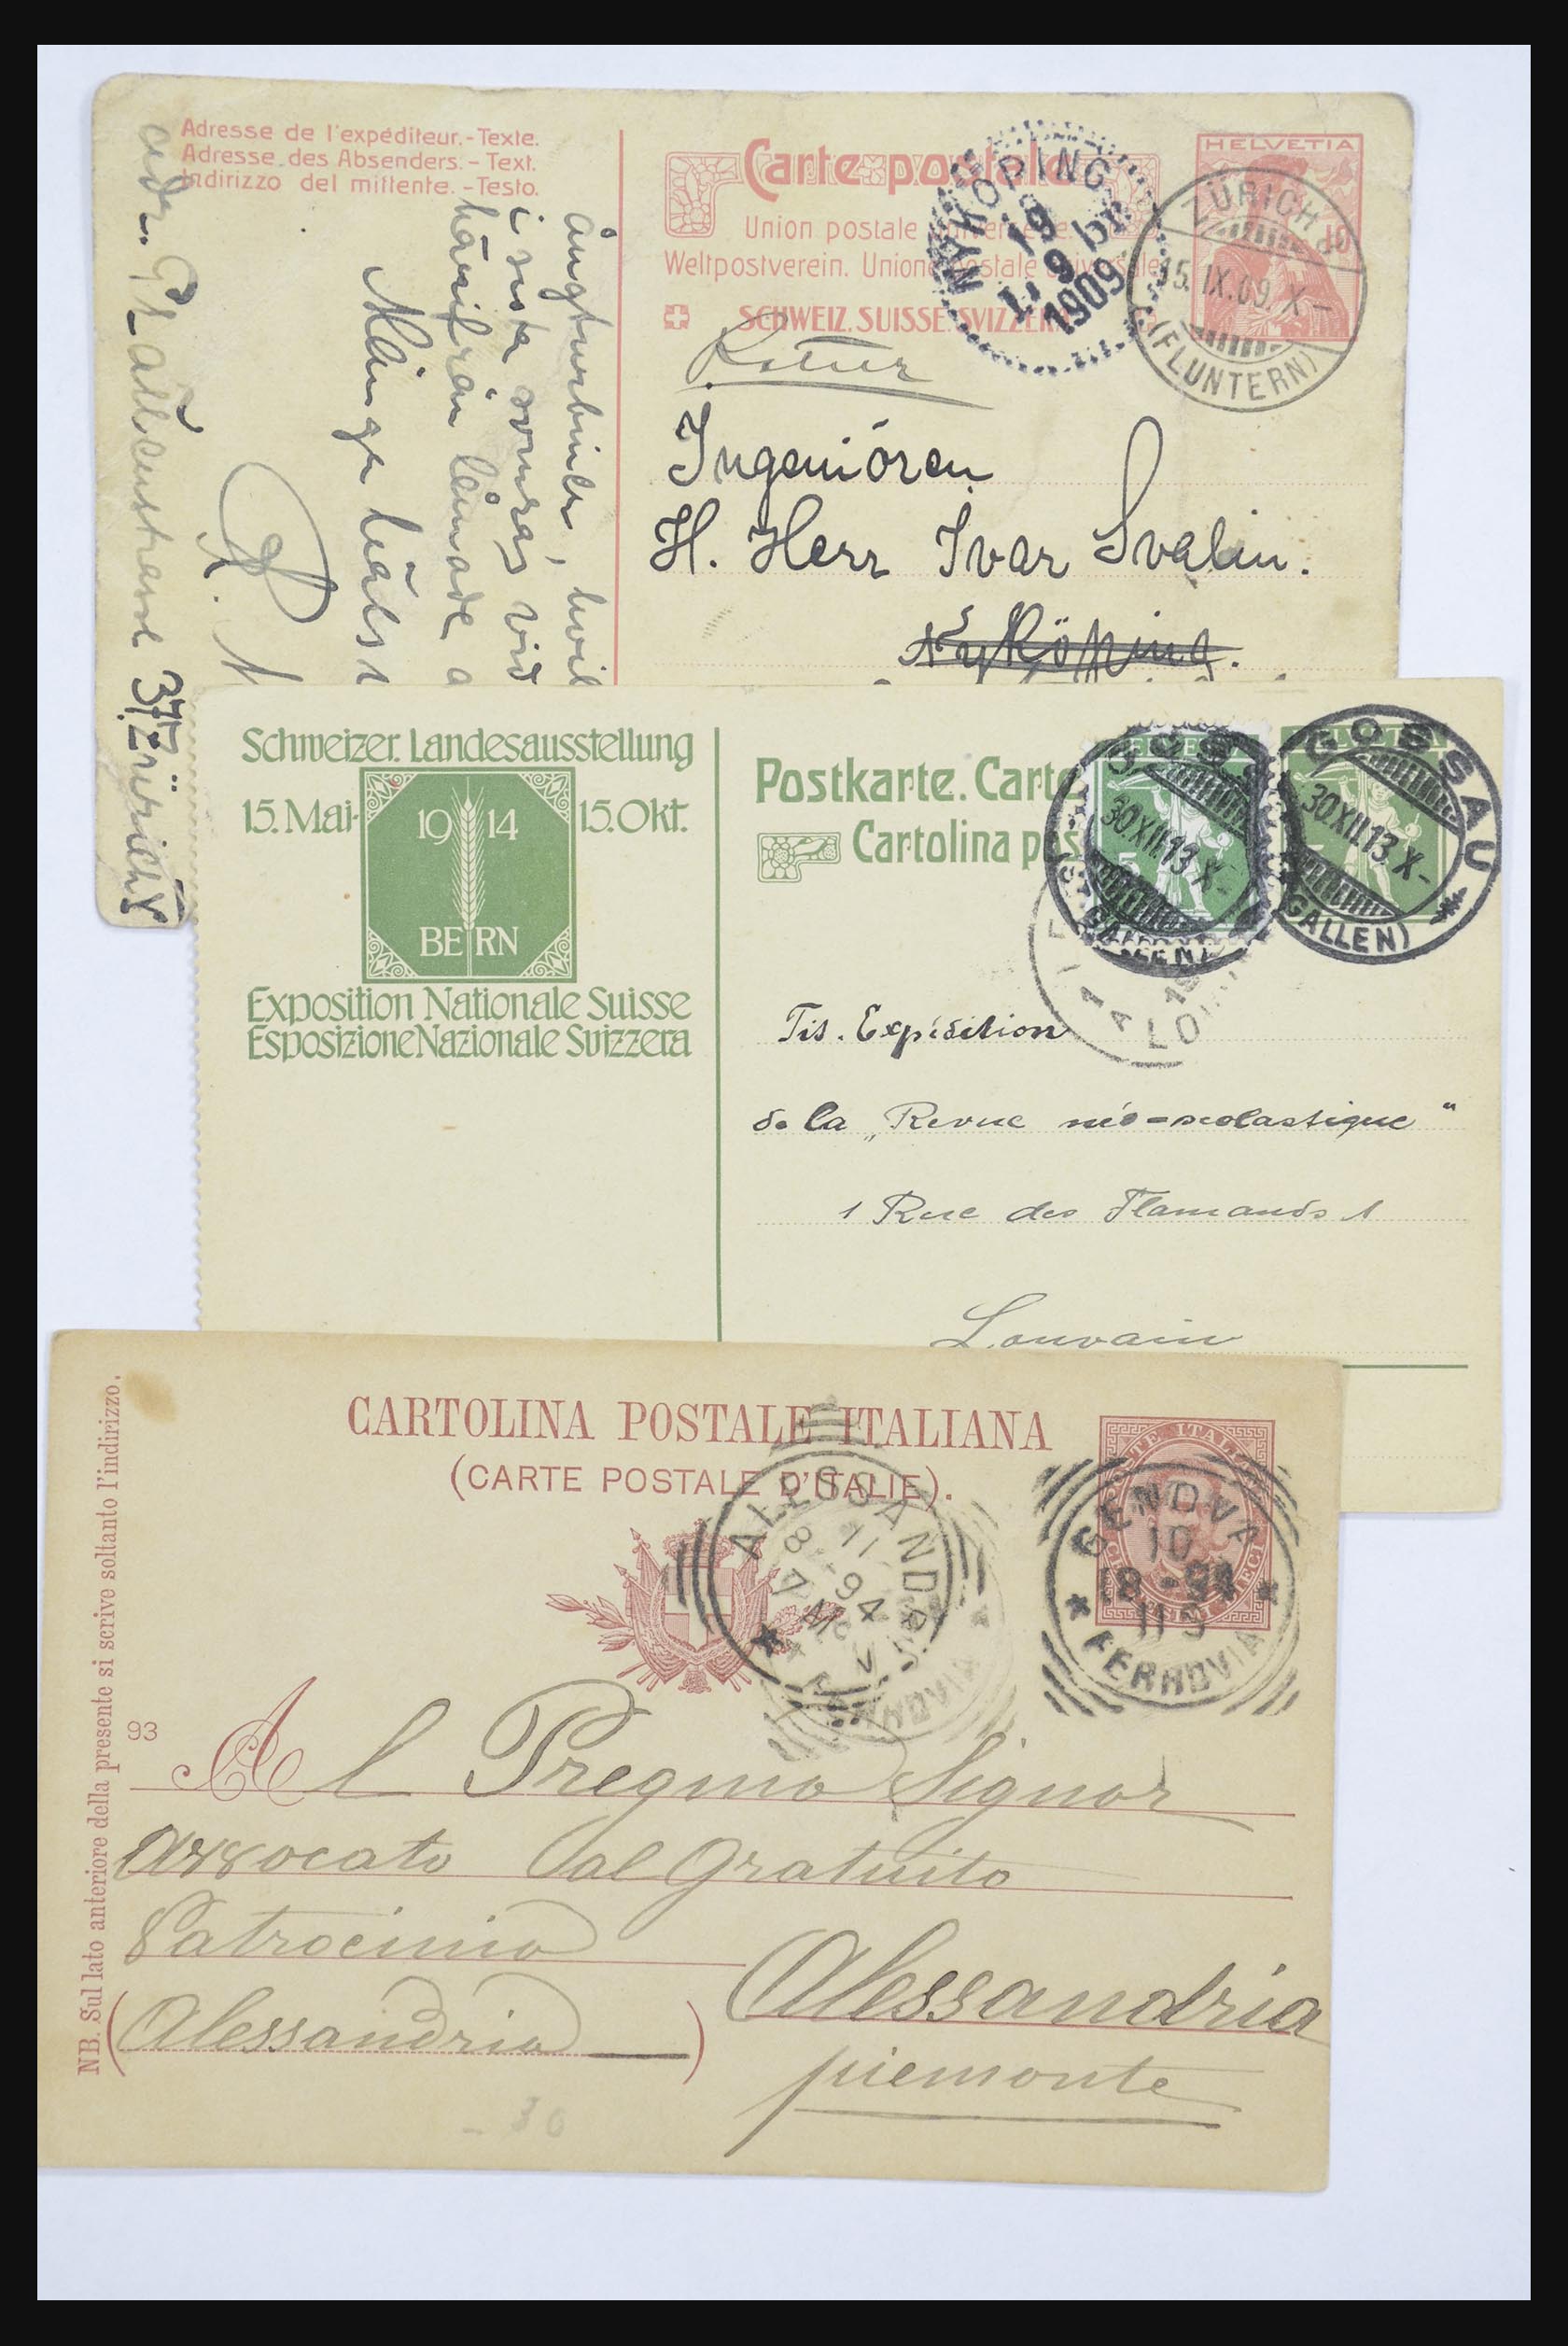 Adresse de l'expéditeur.-Texte.
Adresse des Absenders.-Text.
Indirizzo del mittente.-Testo.
Carte postale
Union postale universelle.
Weltpostverein. Unione postale universale
SCHWEIZ. SUISSE. SVIZZERA
HELVETIA
10
NYKÖPING
19
1909
ZÜRICH
15.IX.09.X-
(FLUNTERN)
Retur
Ingeniören
H. Herr Ivar Svalin.
Nyköping.
ångturbiner,
i sista
härifrån
Många
37 Zürich V
Schweizer. Landesausstellung
15. Mai-
1914
15. Okt.
BERN
Exposition Nationale Suisse
Esposizione Nazionale Svizzera
Postkarte. Carte
Cartolina pos
GOSSAU
30.XII.13.X-
(ST. GALLEN)
GOSSAU
30.XII.13.X-
GALLEN)
Tit. Expédition
de la „Revue néo-scolastique"
1 Rue des Flamands 1
Louvain
CARTOLINA POSTALE ITALIANA
(CARTE POSTALE D'ITALIE).
NB. Sul lato anteriore della presente si scrive soltanto l'indirizzo.
93
ALESSANDR
8 11
94
7 M
GENOVA
10
FERROVIA
Al Pregmo Signor
Avvocato dal Gratuito
Patrocinio
(Alessandria)
Alessandria
piemonte
30